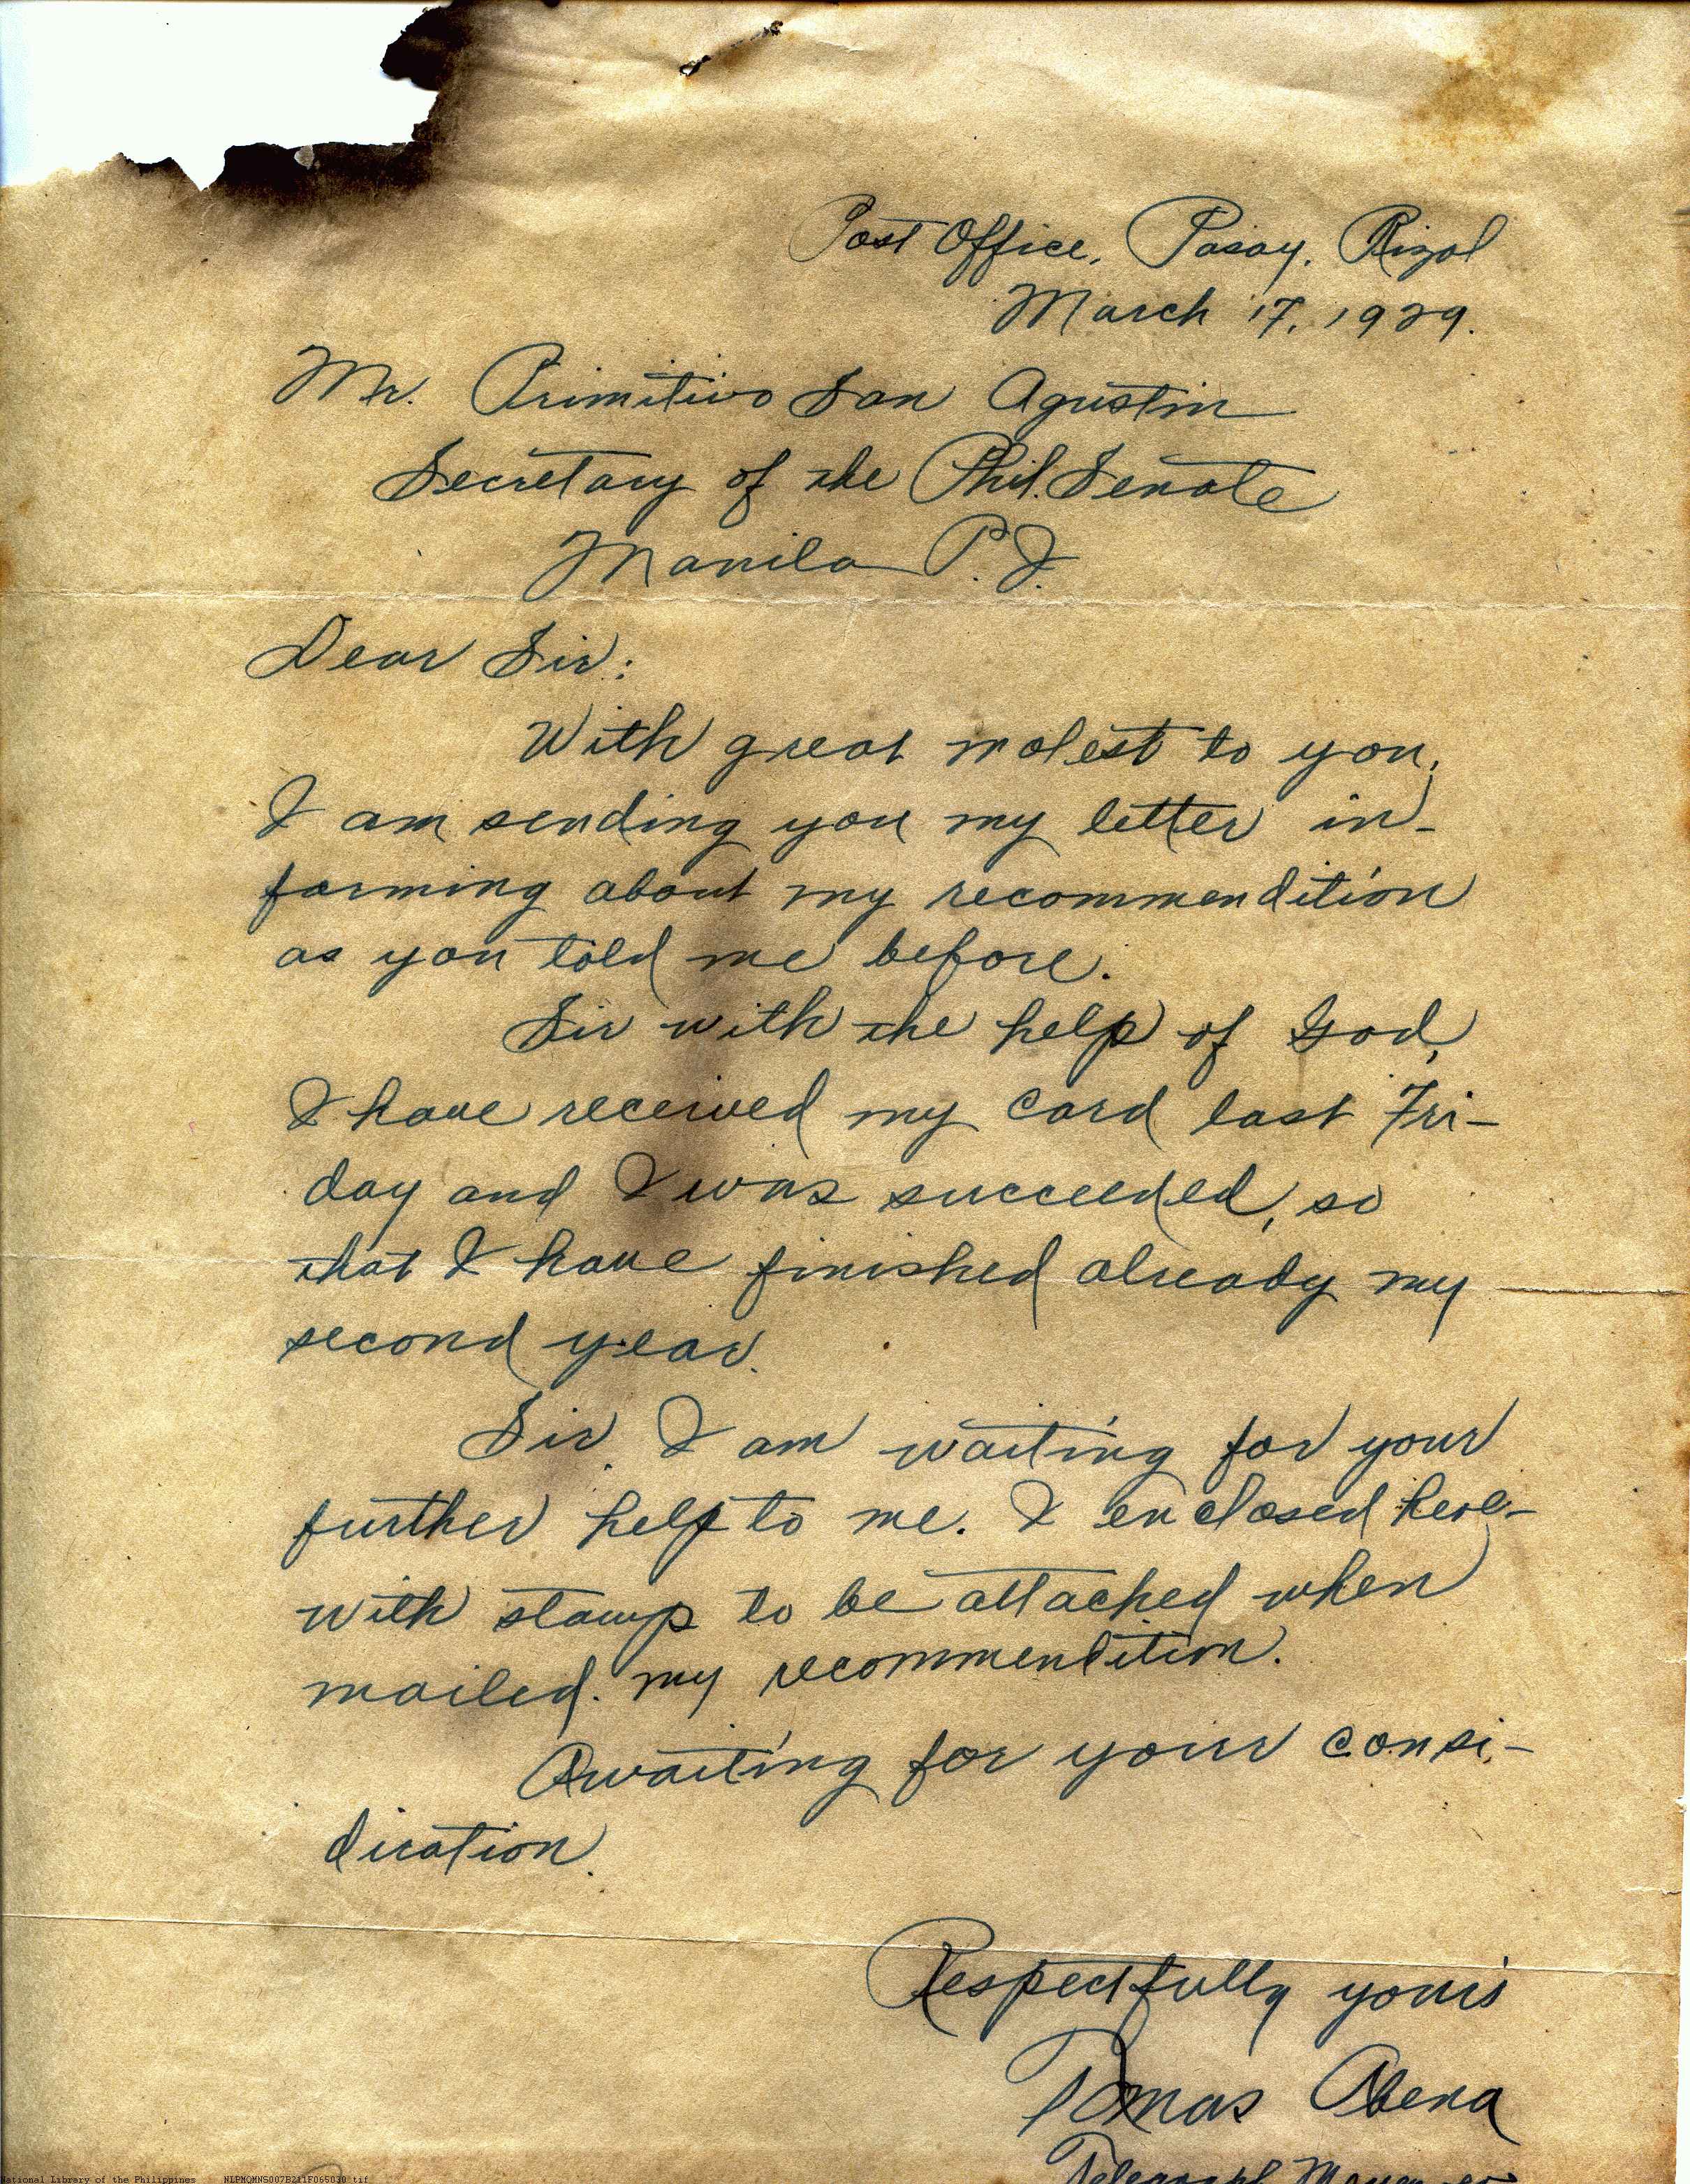 Post Office, Pasay, Rizal
March 17, 1929.
Mr. Primitivo San Agustin
Secretary of the Phil. Senate
Manila P.I.
Dear Sir:
With great molest to you,
I am sending you my letter in-
forming about my recommendition
as you told me before.
Sir with the help of God,
I have received my card last Fri-
day and I was succeeded, so
that I have finished already my
second year.
Sir, I am waiting for your
further help to me. I enclosed here-
with stamp to be attached when
mailed my recommendition.
Awaiting for your consi-
diration.
Respectfully yours
Tomas Abena
National Library of the Philippines NLPMQMNS007B211F065030.tif